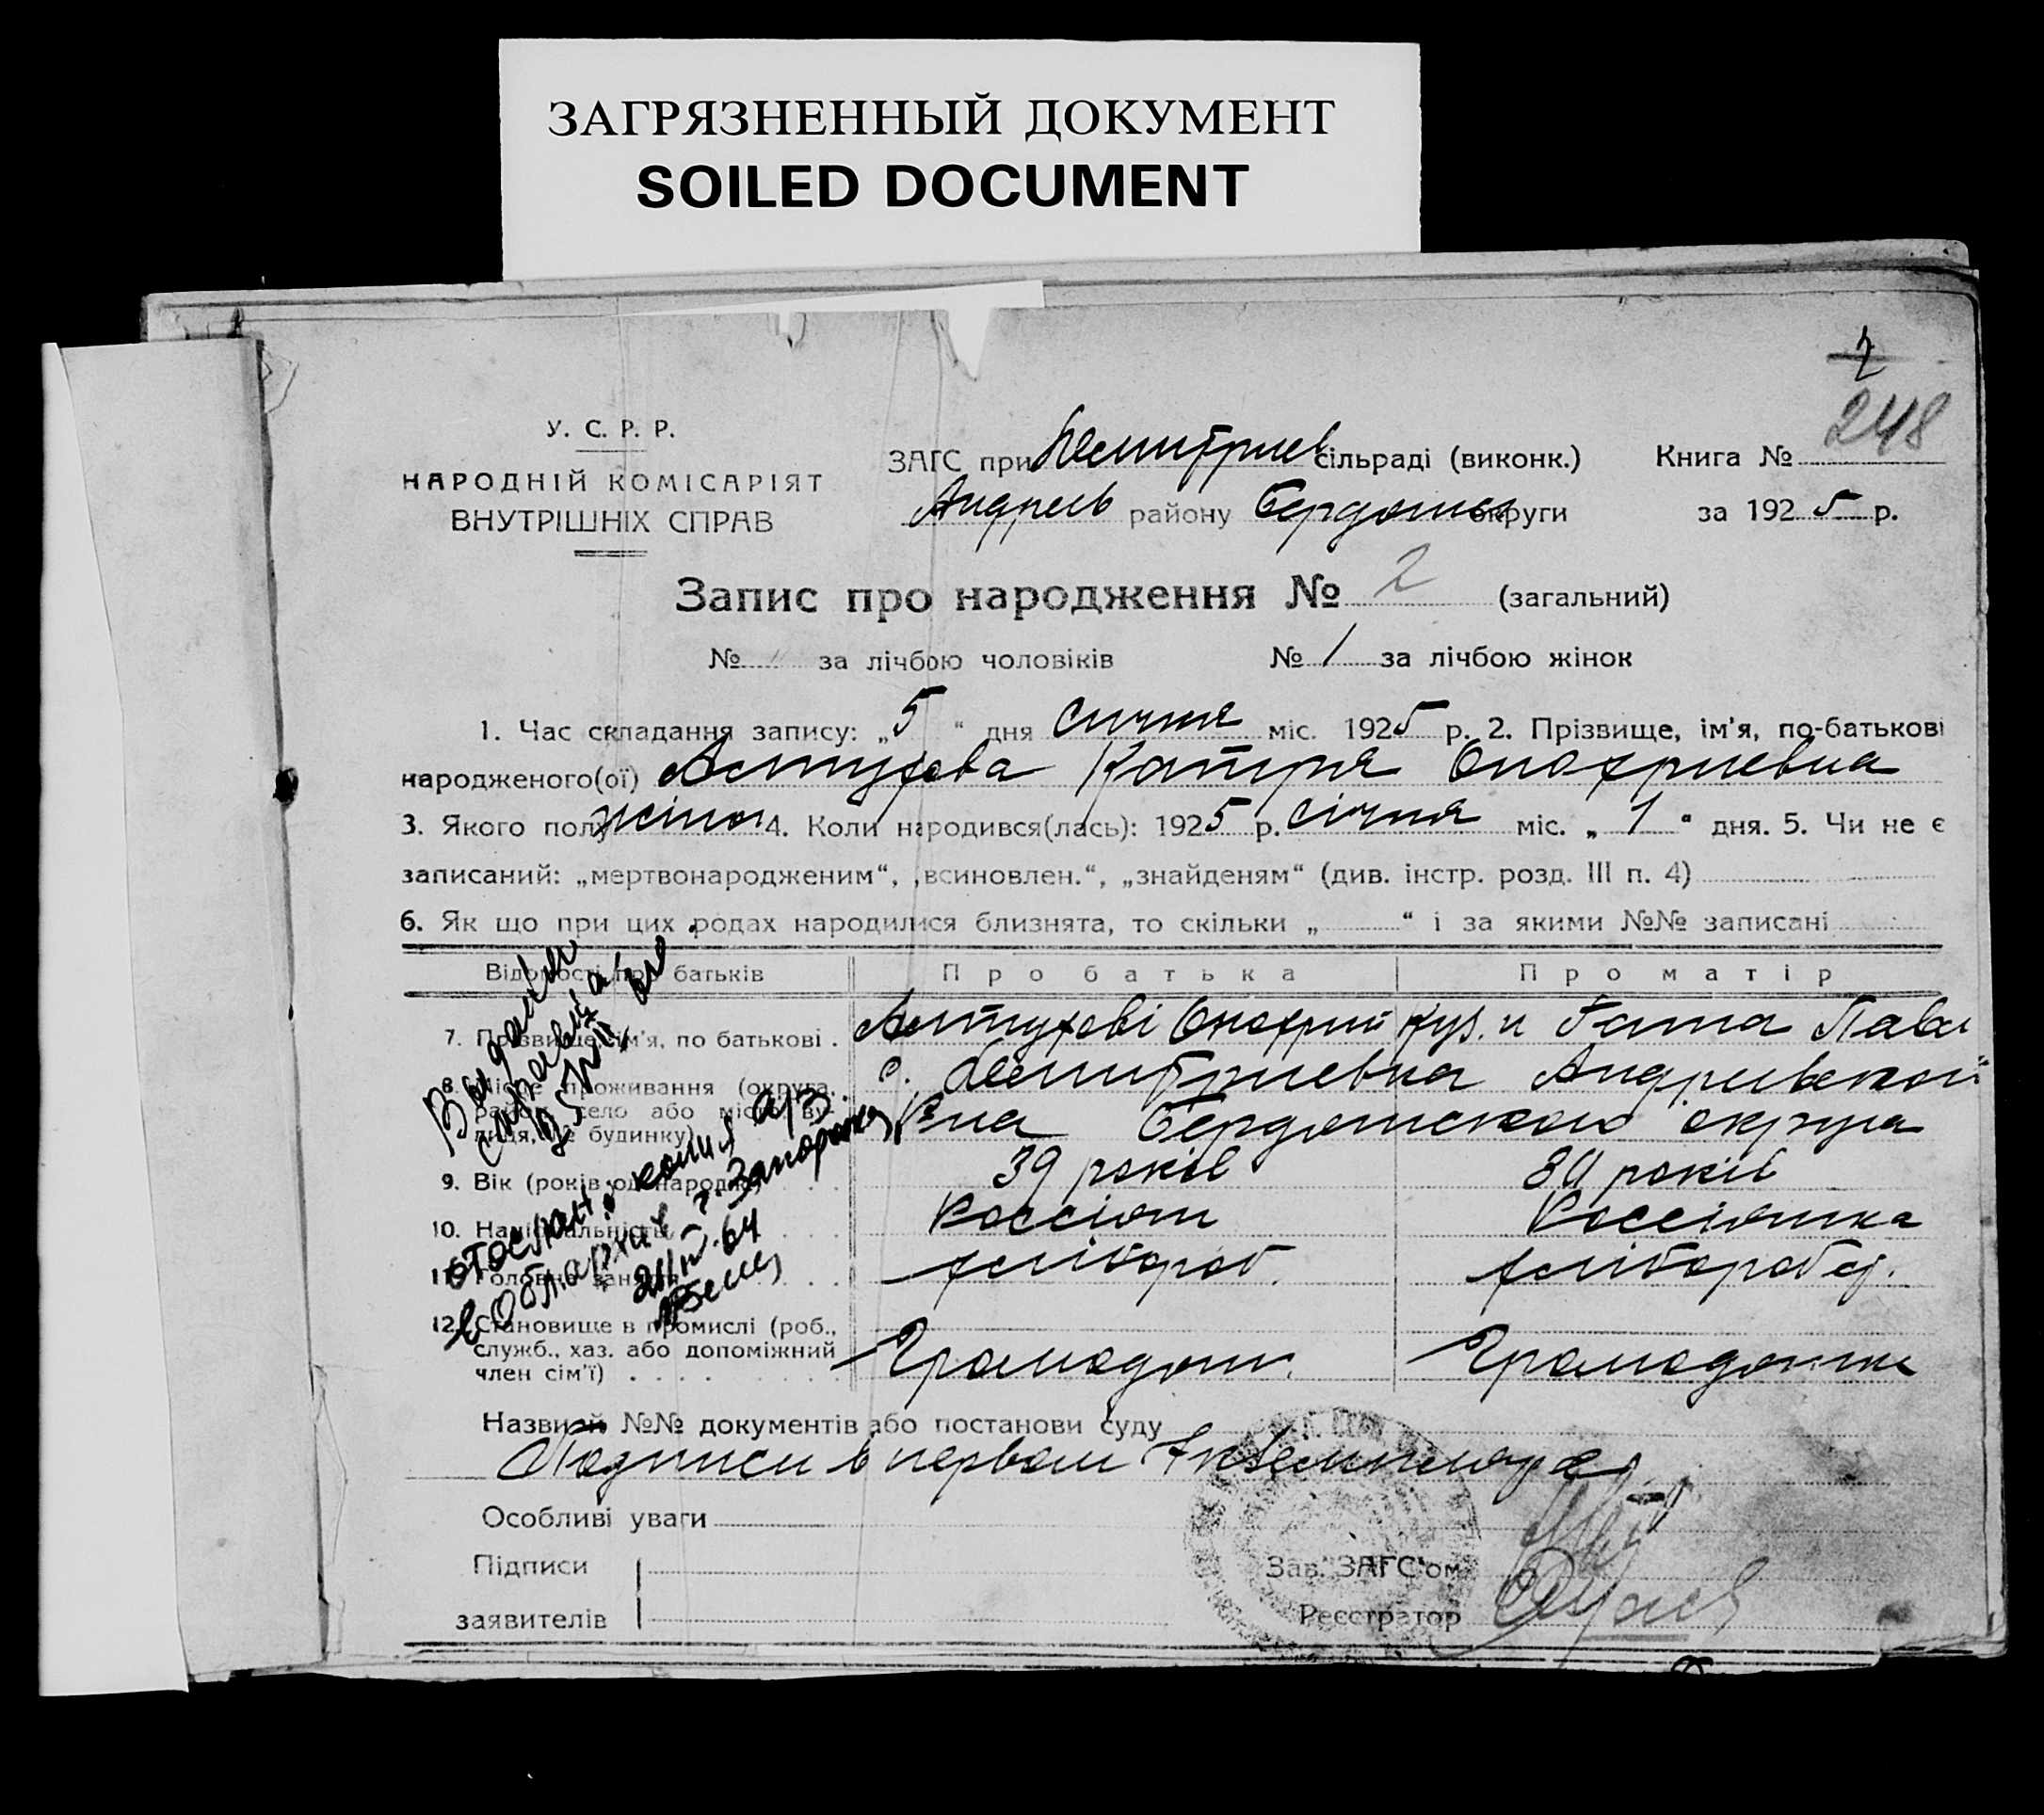 ЗАГРЯЗНЕННЫЙ ДОКУМЕНТ
SOILED DOCUMENT
248
У. С. Р. Р.
НАРОДНІЙ КОМІСАРІЯТ
ВНУТРІШНІХ СПРАВ
ЗАГС при Демитриев сільраді (виконк.) Книга №
Андреев району Бердянськ округи за 1925 р.
Запис про народження № 2 (загальний)
№ за лічбою чоловіків № 1 за лічбою жінок
1. Час складання запису: „5“ дня січня міс. 1925 р. 2. Прізвище, ім'я, по-батькові
народженого(ої) Алтухова Катря Онохриевна
3. Якого полу жіноч 4. Коли народився(лась): 1925 р. січня міс. „1“ дня. 5. Чи не є
записаний: „мертвонародженим“, „всиновлен.“, „знайденям“ (див. інстр. розд. III п. 4)
6. Як що при цих родах народилися близнята, то скільки „ “ і за якими №№ записані
Відомості про батьків Про батька Про матір
7. Прізвище, ім'я, по батькові . Алтухові Онохрий и Гапа Павл
8. Місце проживання (округа, с. Демитриевка Андриевского
район, село або місто, ву-
лиця, № будинку) Р-на Бердянского округа
9. Вік (років од народж.) 39 років 30 років
10. Національність Россіян Россіянка
11. Головне заняття хлібороб. хлібороб
12. Становище в промислі (роб.,
служб., хаз. або допоміжний
член сім'ї) Громадян. Громадянка
Выдана
справка
отослана копия
в Облархив г. Запорожье
64
Назви й №№ документів або постанови суду
Подписи в первом Екземпляре
Особливі уваги
Підписи
заявителів
Зав. „ЗАГС“ом
Реєстратор